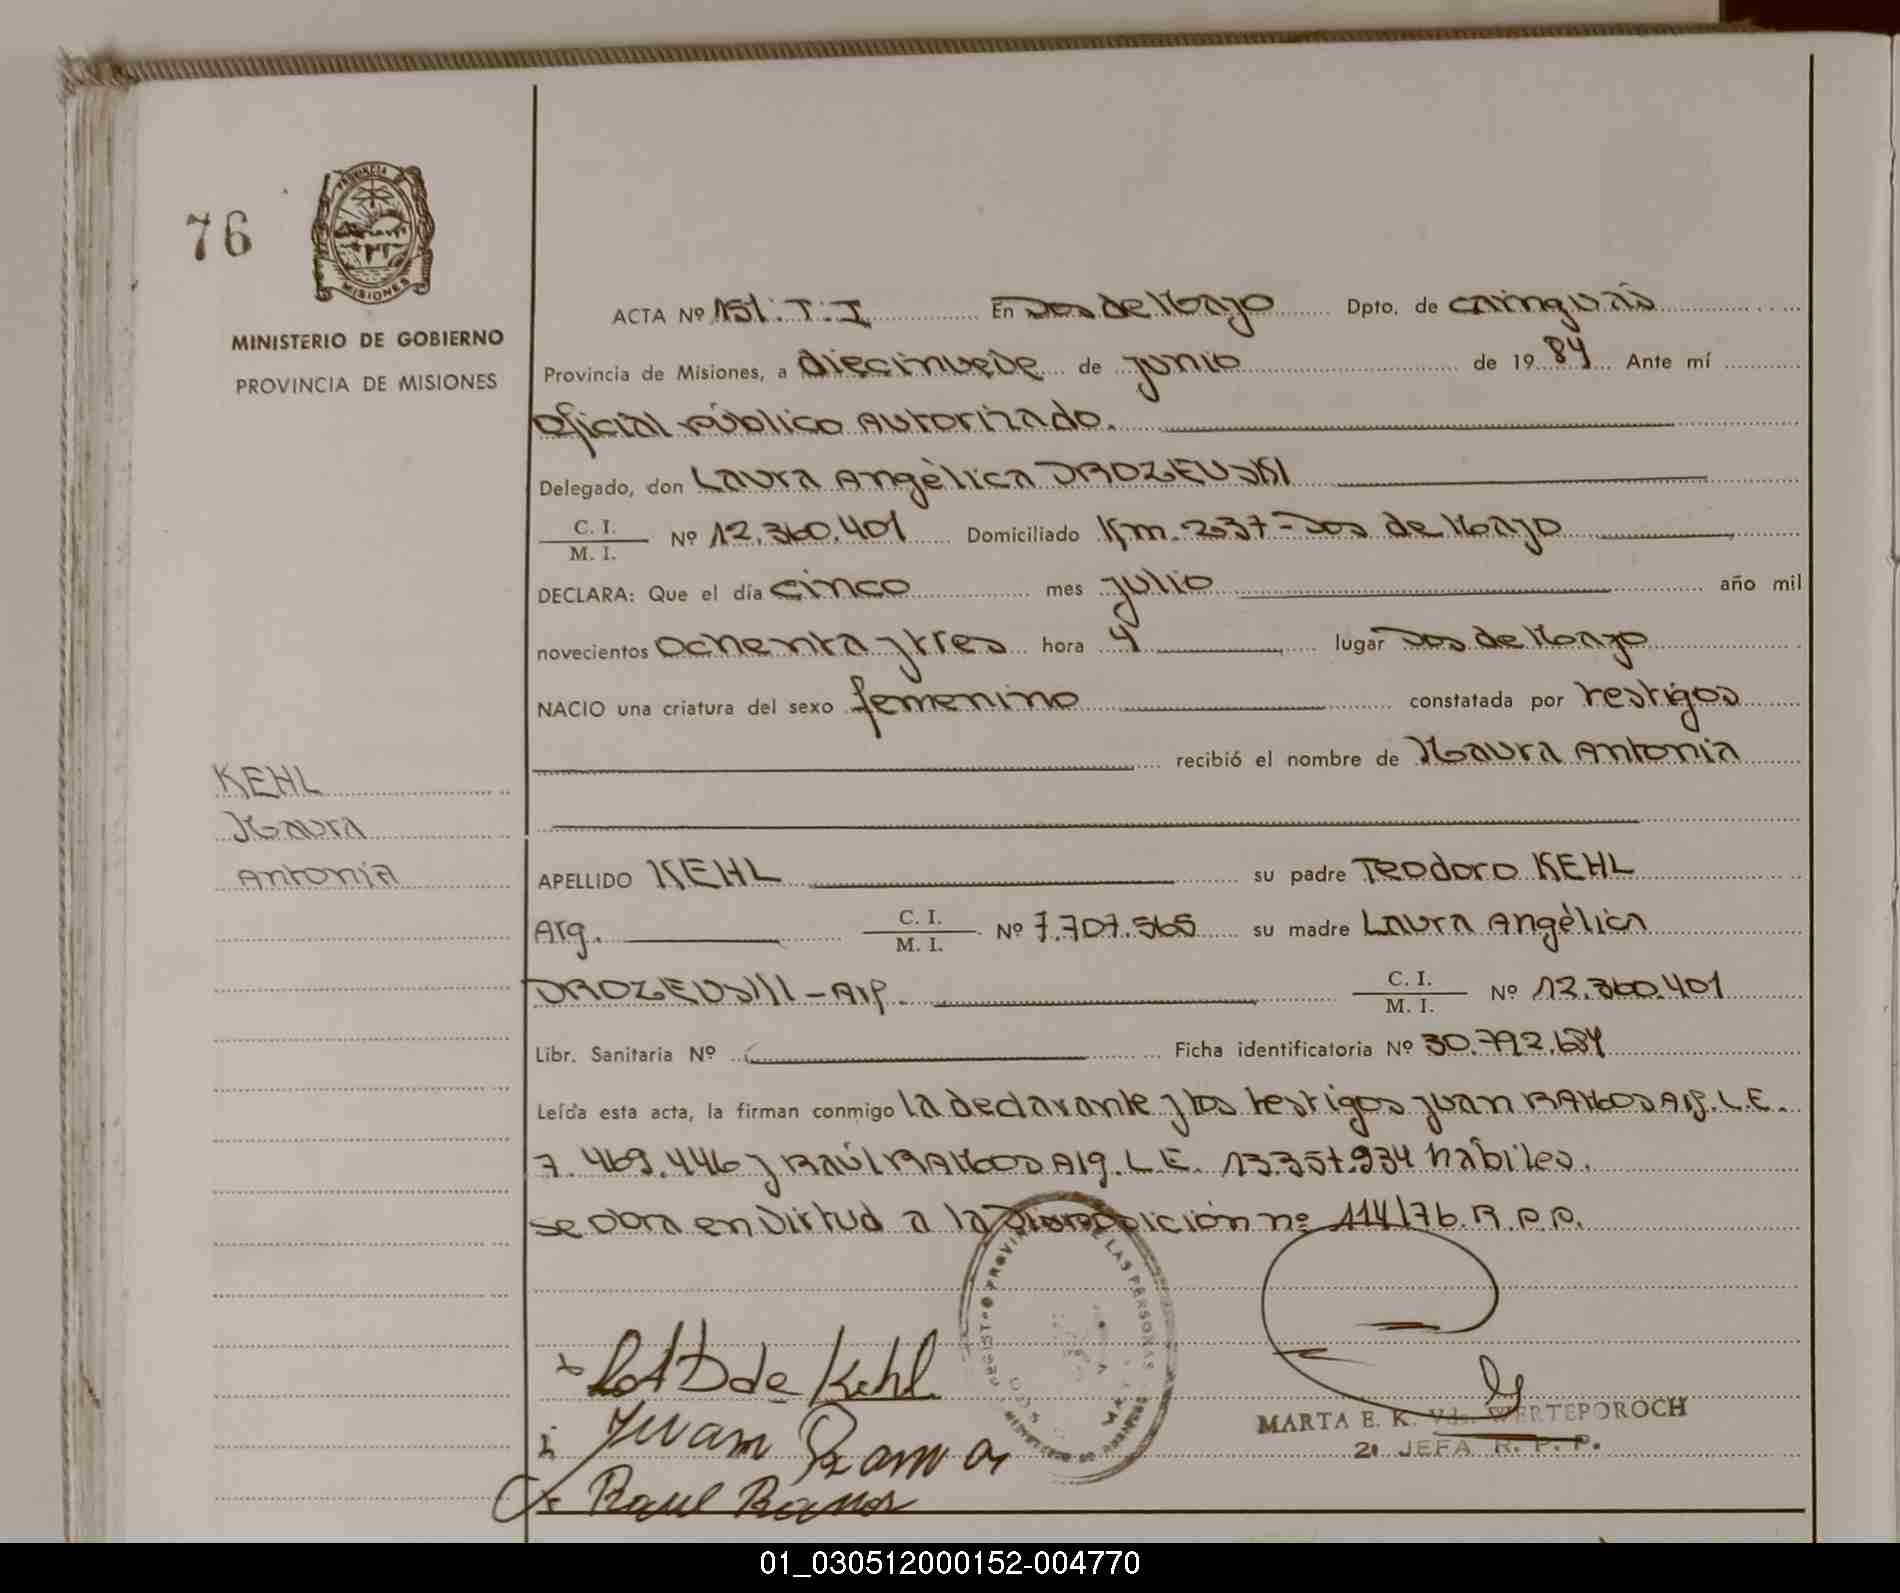 76
PROVINCIA DE
MISIONES
MINISTERIO DE GOBIERNO
PROVINCIA DE MISIONES
ACTA Nº 151. T. I En Dos de Mayo Dpto. de cainguás
Provincia de Misiones, a diecinueve de junio de 1984 Ante mí
Oficial Público Autorizado.
Delegado, don Laura Angélica DROZEUSKI
C. I.
M. I. Nº 12.360.401 Domiciliado Km. 237 - Dos de Mayo
DECLARA: Que el día cinco mes julio año mil
novecientos ochenta y tres hora 4 lugar Dos de Mayo
NACIO una criatura del sexo femenino constatada por testigos
recibió el nombre de Maura Antonia
KEHL
Maura
Antonia
APELLIDO KEHL su padre Teodoro KEHL
Arg. C. I.
M. I. Nº 7.707.565 su madre Laura Angélica
DROZEUSKI - Arg. C. I.
M. I. Nº 12.360.401
Libr. Sanitaria Nº Ficha identificatoria Nº 30.792.684
Leída esta acta, la firman conmigo la declarante y los testigos juan RAMOS Arg. L.E.
7.469.446 y RAúl RAMOS Arg. L.E. 13.357.934 hábiles.
se obra en virtud a la Disposición nº 114/76. R.P.P.
LATD de Kehl
Juan Ramos
Raul Ramos
MARTA E. K. Vda. WERTEPOROCH
2ª JEFA R. P. P.
01_030512000152-004770